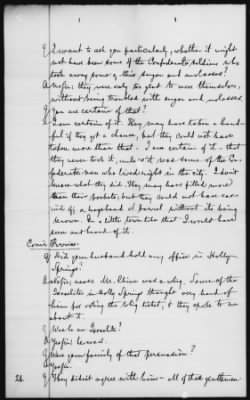 Q I want to ask you particularly, whether it might
not have been some of the Confederate soldiers who
took away some of this sugar and molasses?
A No sir; they were only too glad to move themselves,
without being troubled with sugar and molasses.
Q You are certain of that?
A I am certain of it. They may have taken a hand-
ful if they got a chance, but they could not have
taken more than that. I am certain of it - that
they never took it, unless it was some of the Co-
federate men who lived right in the city. I don't
know what they did. They may have filled more
than their pockets, but they could not have car-
ried off a hogshead or barrel without its being
known. In a little town like that I would have
seen and heard of it.
Q Did your husband hold any office in Holly
Springs?
A No sir, never. Mr. was a whig. Some of the
Israelites in Holly Springs thought very hard of
him for voting the whig ticket, & they spoke to me
about it.
Q Was he an Israelite?
A Yes sir; he was.
Q Were your family of that persuasion?
A Yes sir.
Q They did not agree with him - all of those gentlemen